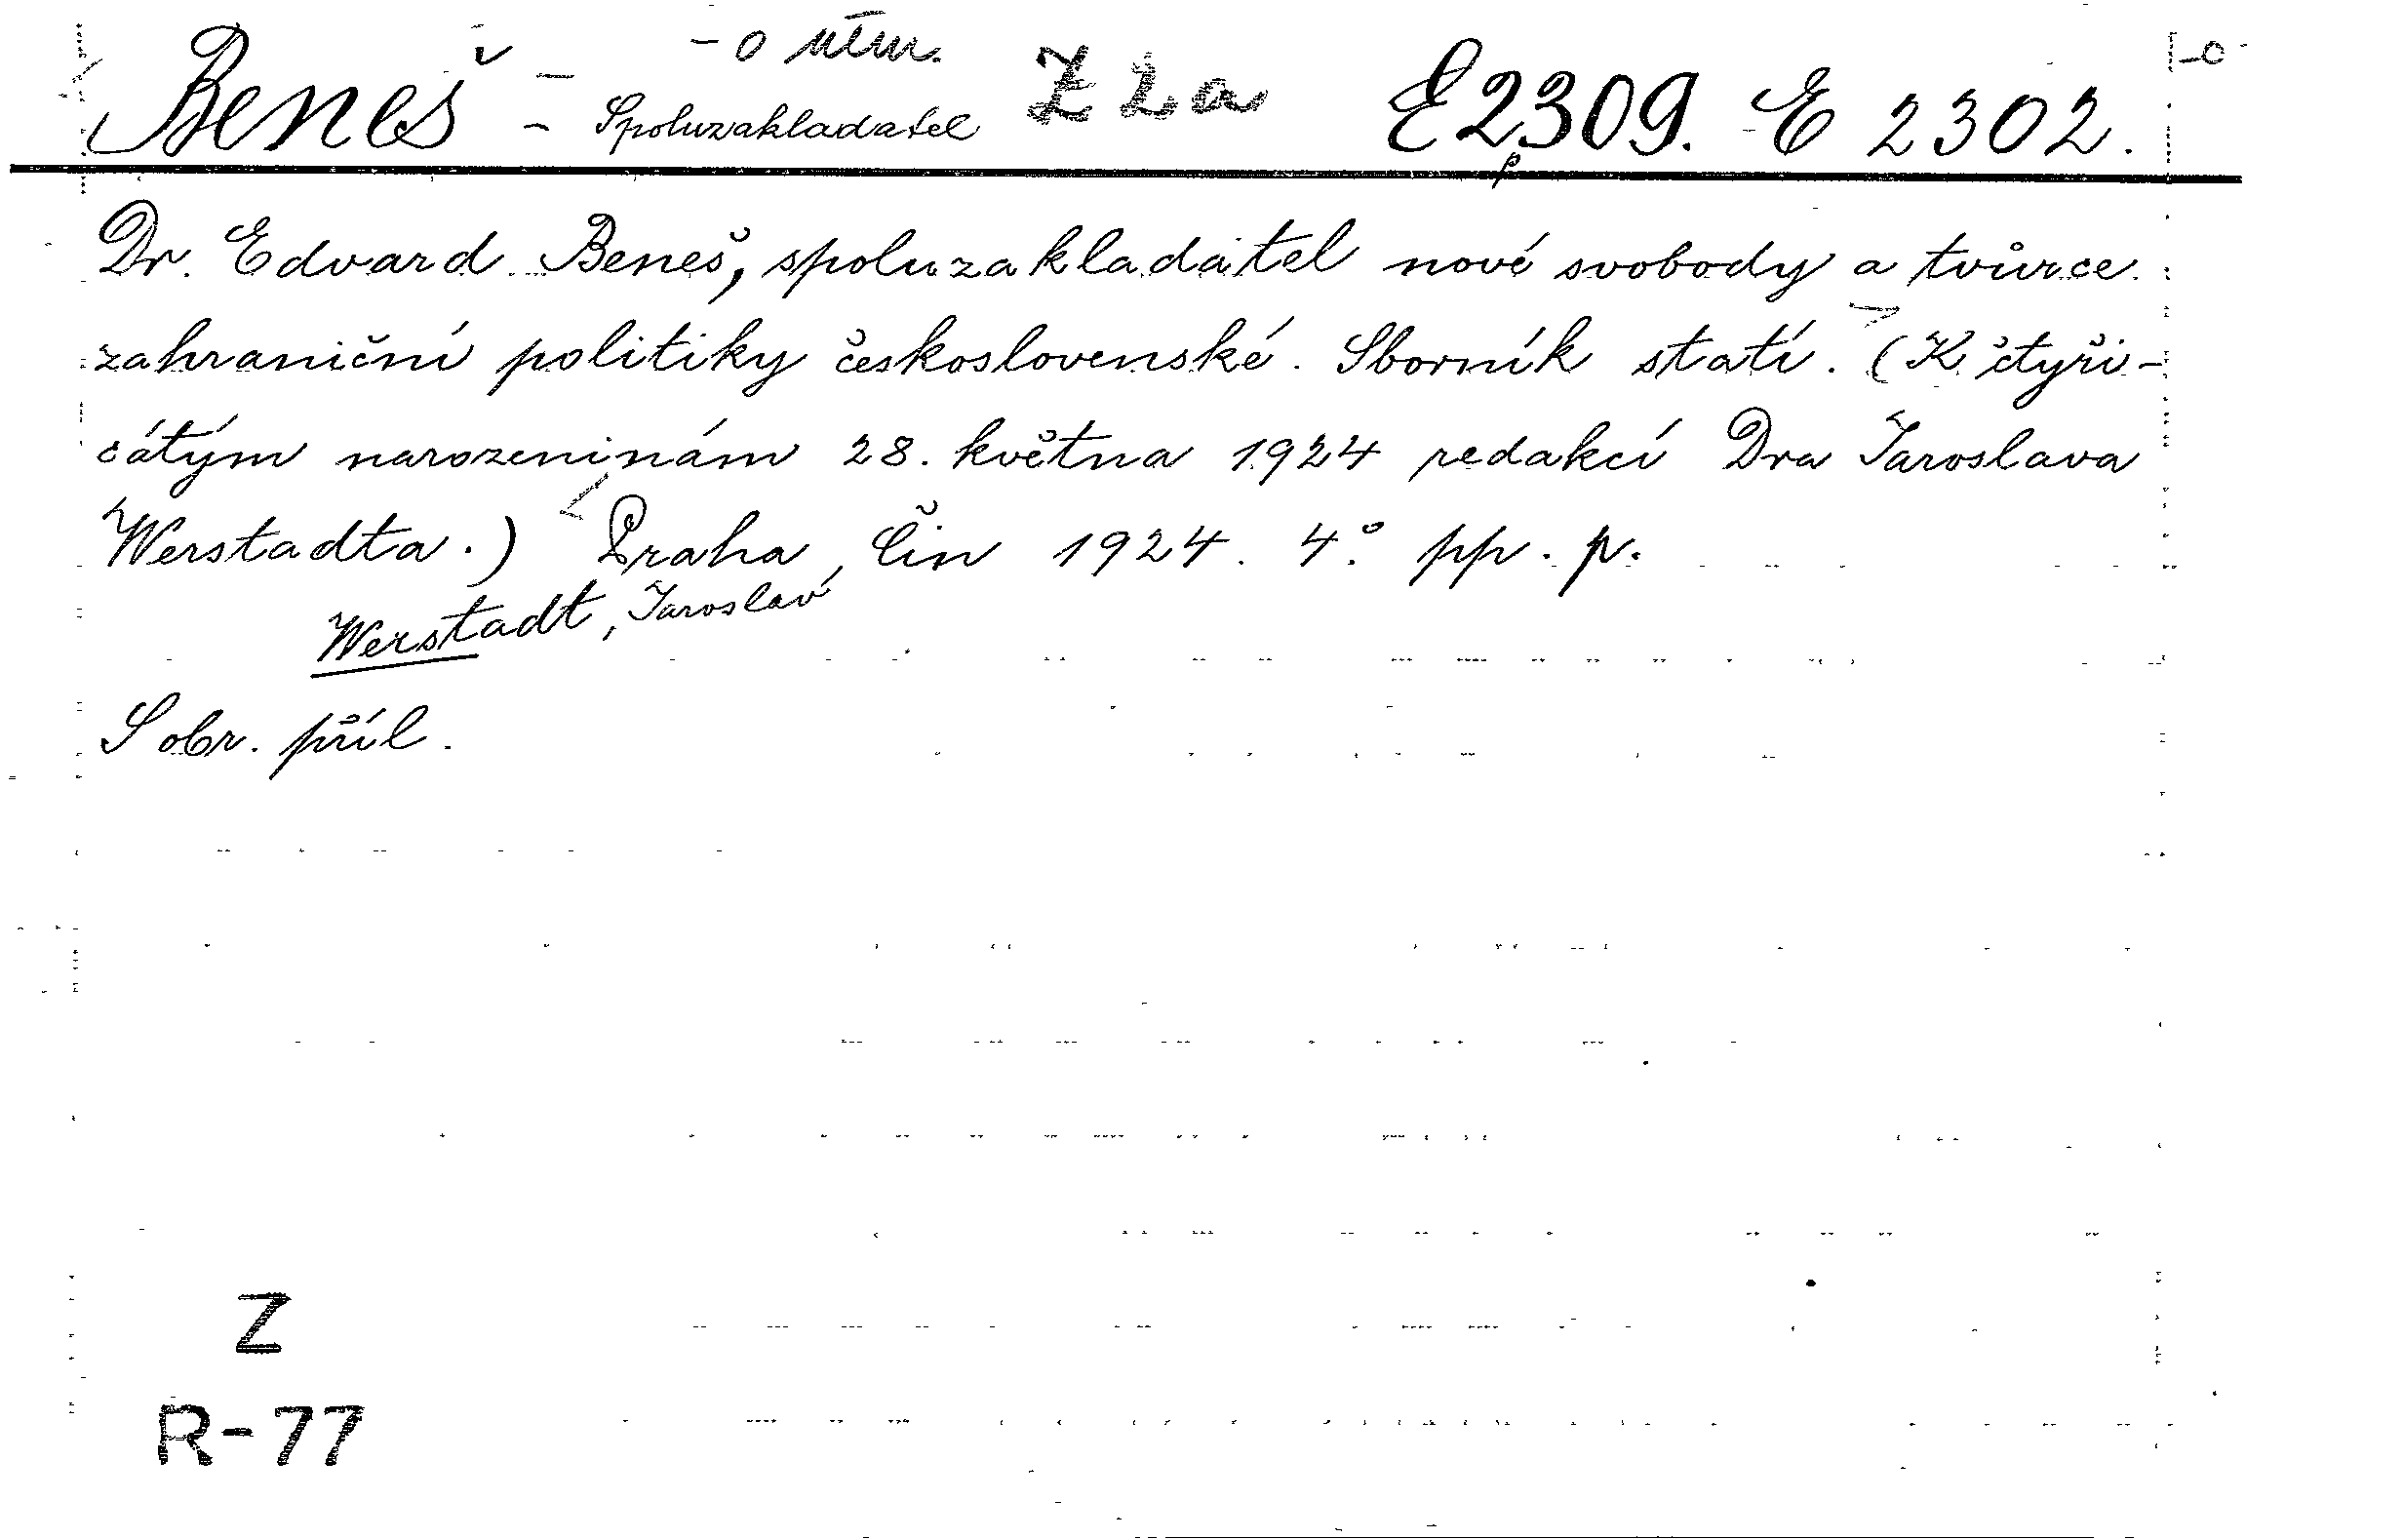 Beneš - o něm. Z 2a E 2309. E 2302.
- Spoluzakladatel
Dr. Edvard Beneš, spoluzakladatel nové svobody a tvůrce
zahraniční politiky československé. Sborník statí. (K čtyři-
cátým narozeninám 28. května 1924 redakcí Dra Jaroslava
Werstadta.) Praha, Čin 1924. 4° pp. p.
Werstadt, Jaroslav
S obr. příl.
Z
R-77